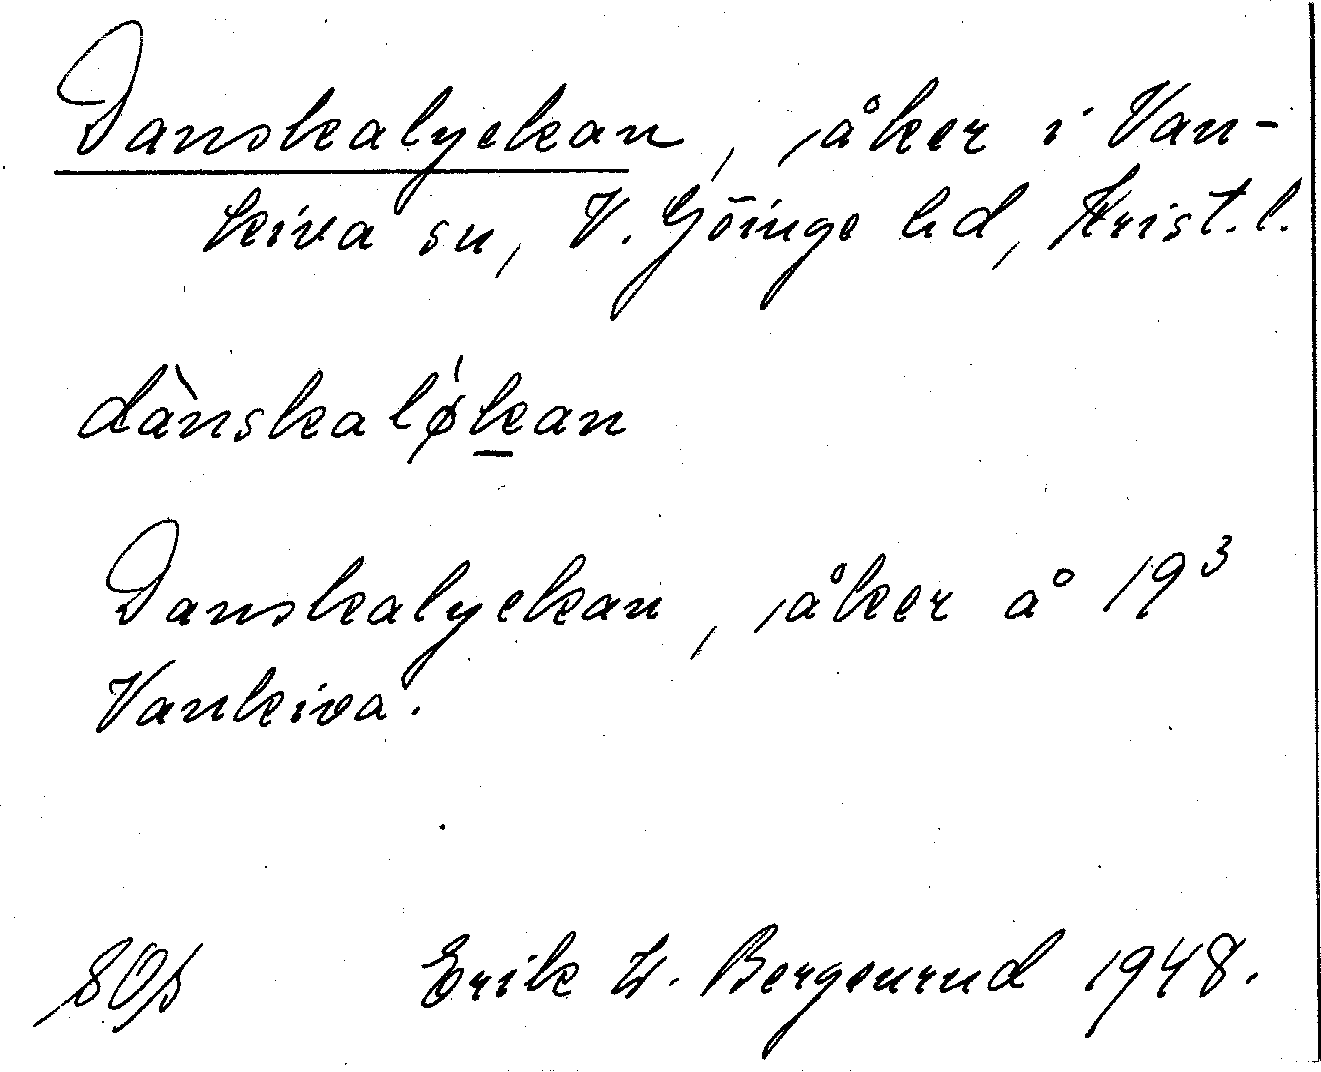 Danskalyckan, åker i Van-
kiva sn, V. Göinge hd, Krist. l.
dànskaløkan
Danskalyckan, åker å 19³
Vankiva.
Erik W. 1948.